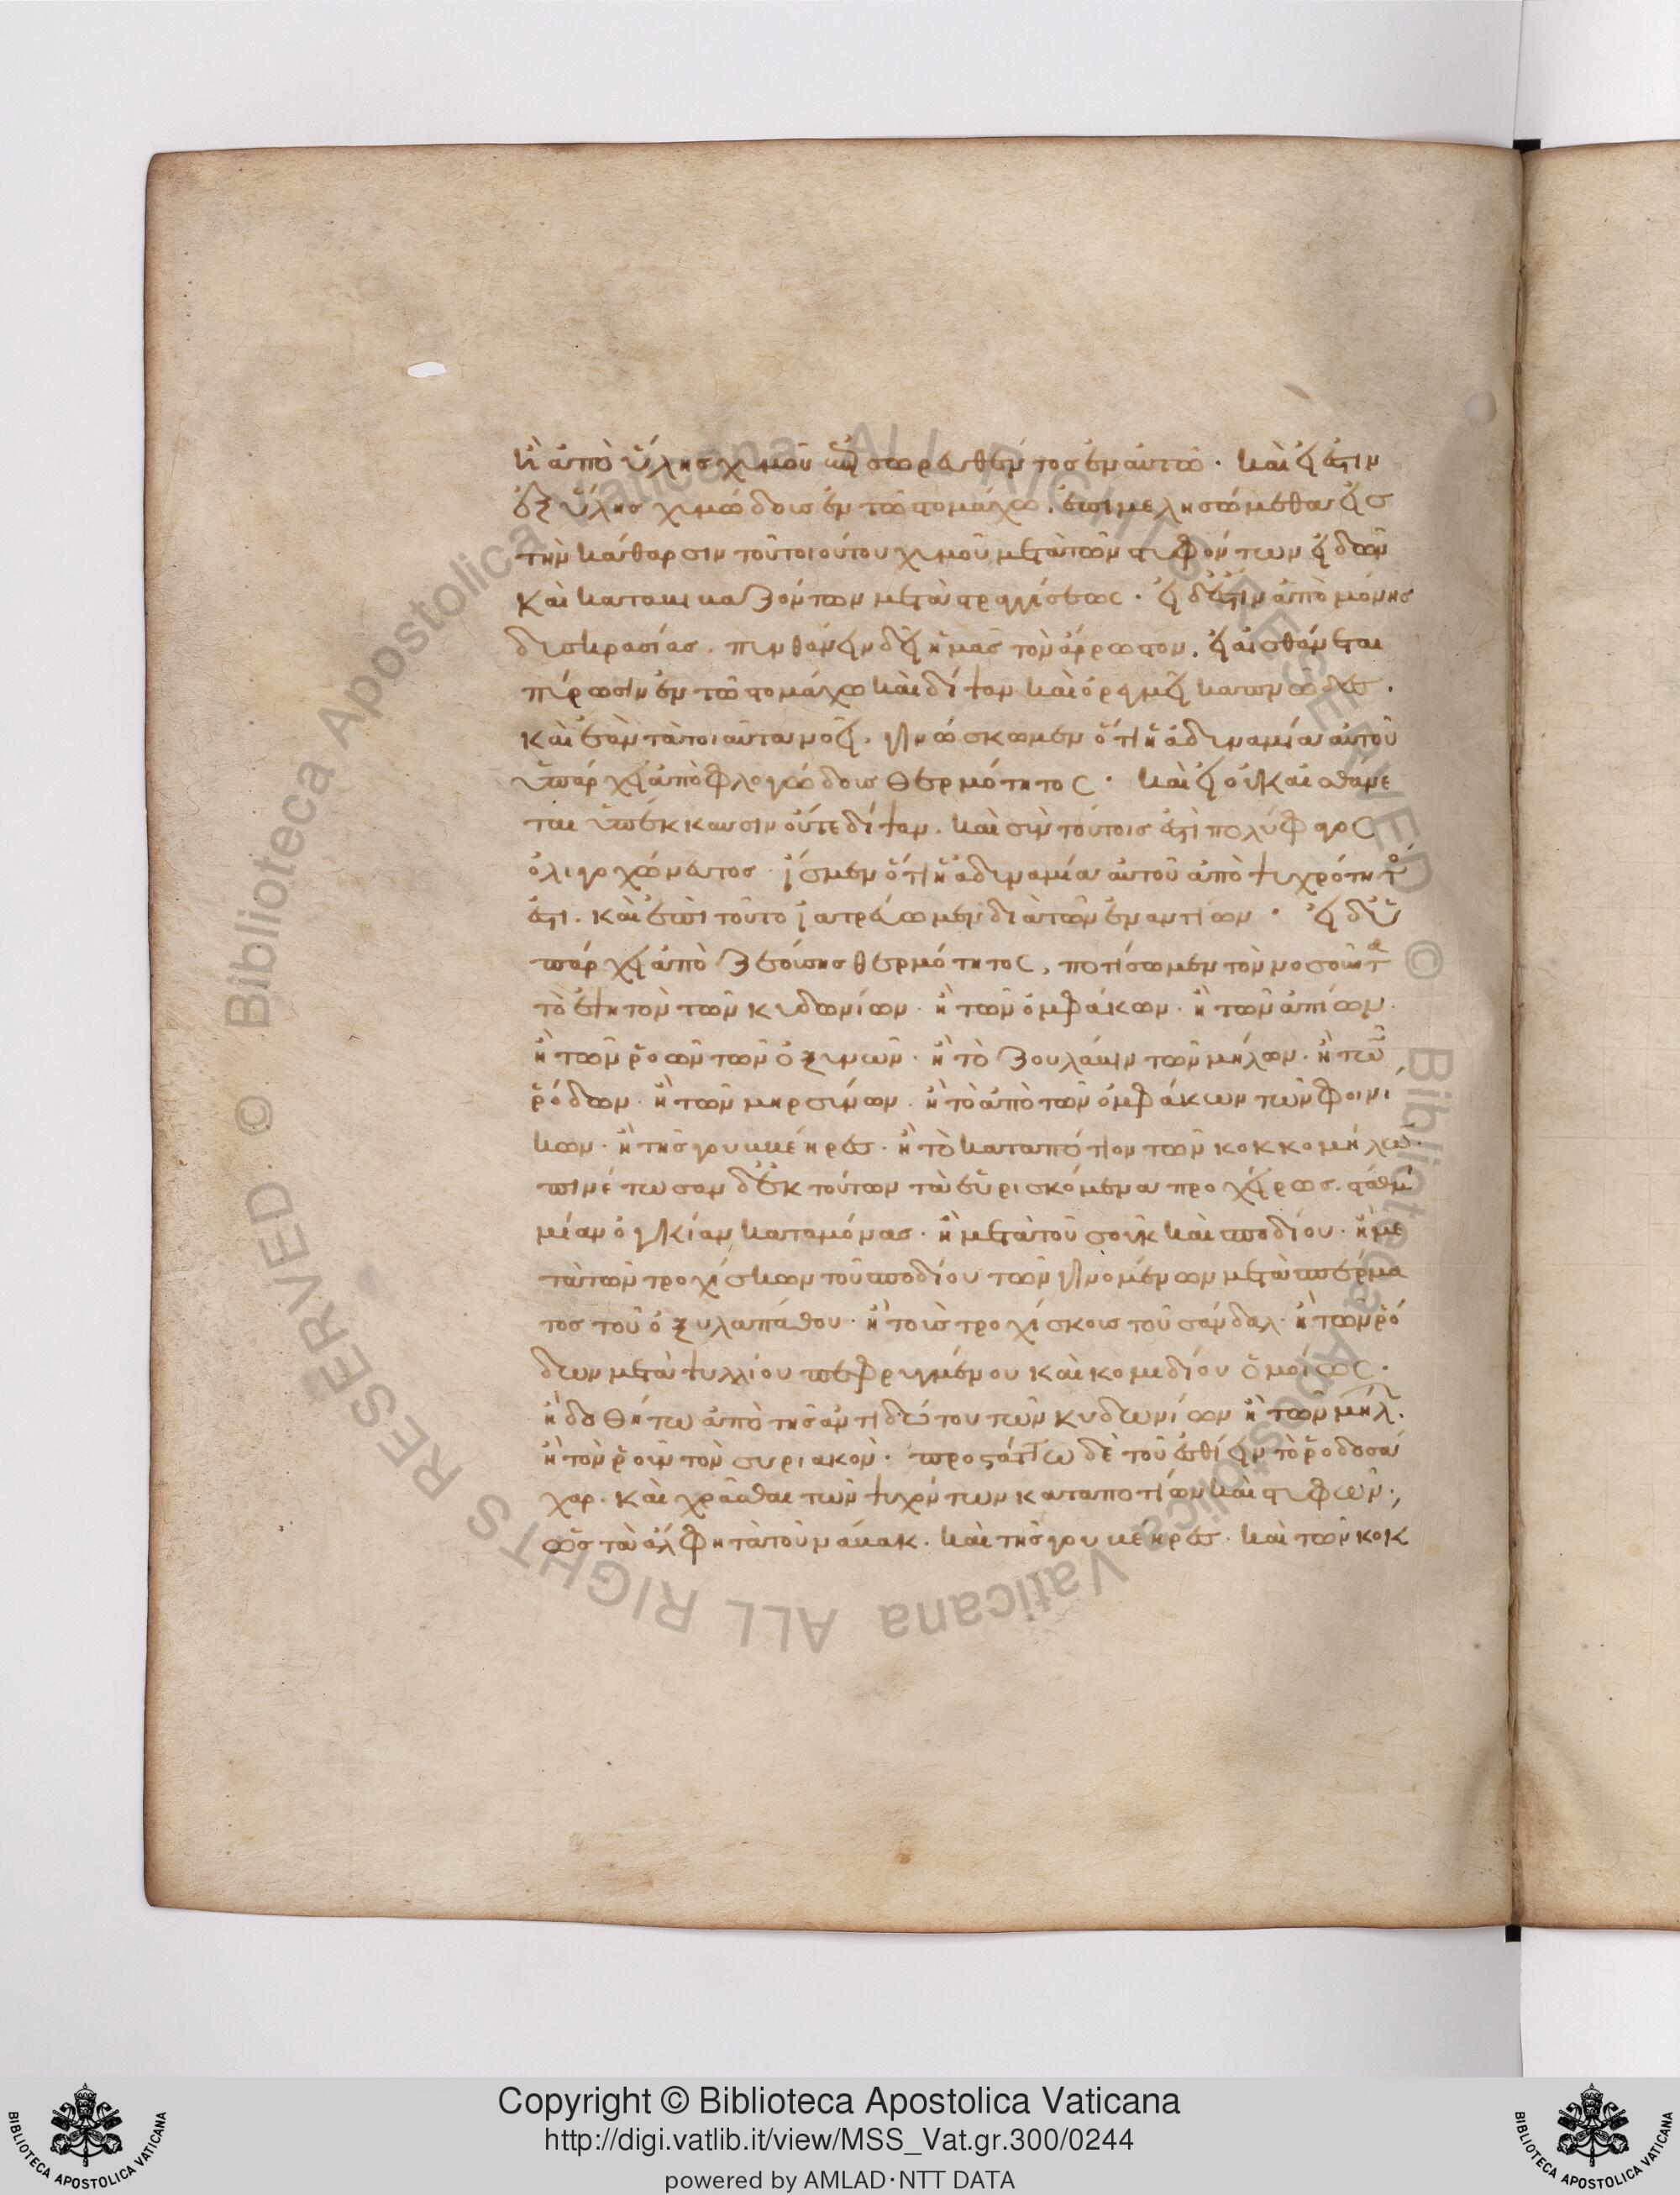 ἢ ἀπὸ ὕλης χυμοῦ σωρευθέντος ἐν αὐτῶ · καὶ εἰ ἔστιν
ἐξ ὕλης χυμώδους ἐν τῶ στομάχω . ἐπιμελησώμεθα εἰς
τὴν κάθαρσιν τοῦ τοιούτου χυμοῦ μετὰ τῶν στυφόντων εἰδῶν
καὶ κατακικαζόντων μετὰ στραγγίσεως · εἰ δέ ἐστιν ἀπὸ μόνης
δυσκρασίας . πυνθάνειν δεῖ ἡμᾶς τὸν ἄρρωστον . εἰ αἰσθάνεται
πύρωσιν ἐν τῶ στομάχω καὶ δίψαν καὶ ὀρυγμεῖ καπνώδες .
καὶ ἐὰν τὰ τοιαῦτα νοεῖ . γινώσκωμεν ὅτι ἡ ἀδυναμία αὐτοῦ
ὑπάρχει ἀπὸ φλογώδους θερμότητος · καὶ εἰ οὐκ αἰσθάνε
ται ὑπέκκαυσιν οὔτε δίψαν . καὶ σὺν τούτοις ἐστὶ πολύφαγος
ὀλιγοχώνευτος · ἴσμεν ὅτι ἡ ἀδυναμία αὐτοῦ ἀπὸ ψυχρότητο
ἐστι . καὶ ἐπὶ τοῦτο ἰατρεύωμεν διὰ τῶν ἐναντίων · εἰ δὲ ὑ
πάρχει ἀπὸ ζεούσης θερμότητος , ποτίσωμεν τὸν νοσοῦντα
τὸ ἑψητὸν τῶν κυδωνίων · ἢ τῶν ὀμφάκων · ἢ τῶν ἀπίων ·
ἢ τῶν ῥοῶν τῶν ὀξινῶν · ἢ τὸ ζουλάπιν τῶν μήλων · ἢ τῶν
ῥόδων · ἢ τῶν μυρσίνων · ἢ τὸ ἀπὸ τῶν ὀμφάκων τῶν φοινί
κων · ἢ τῆς γουικένρες · ἢ τὸ καταπότιον τῶν κοκκομήλων ·
πινέτωσαν δὲ ἐκ τούτων τὰ εὑρισκόμενα προχείρως . στάθμ
μίαν οὐγκίαν καταμόνας · ἢ μετὰ τοῦ σοὺκ καὶ σποδίου · ἢ με
τὰ τῶν τροχίσκων τοῦ σποδίου τῶν γινομένων μετὰ σπέρμα
τος τοῦ ὀξυλαπάθου · ἢ τοὺς τροχίσκους τοῦ σάνδαλ · ἢ τῶν ῥό
δων μετὰ ψυλλίου πεφρυγμένου καὶ κομιδίου ὁμοίως ·
ἢ δοθήτω ἀπὸ τῆς ἀντιδώτου τῶν κυδωνίων ἢ τῶν μήλ .
ἢ τὸν ῥοῦν τὸν συριακὸν · προστάττω δὲ τοῦ ἐσθίειν τὸ ῥοδοσά
χαρ · καὶ χρᾶσθαι τῶν ψυχόντων καταποτίων καὶ στυφῶν ·,
ὡς τὰ ἄλφητα τοῦ νάνακ . καὶ τῆς γουκένρες · καὶ τῶν κοκ
Copyright © Biblioteca Apostolica Vaticana
http://digi.vatlib.it/view/MSS_Vat.gr.300/0244
powered by AMLAD·NTT DATA
BIBLIOTECA APOSTOLICA VATICANA
BIBLIOTECA APOSTOLICA VATICANA
© Biblioteca Apostolica Vaticana ALL RIGHTS RESERVED © Biblioteca Apostolica Vaticana ALL RIGHTS RESERVED